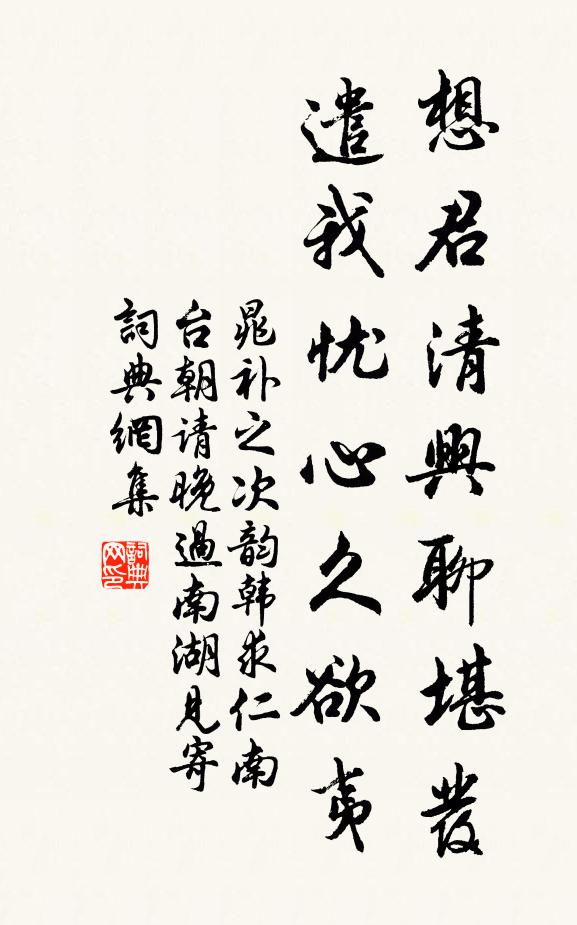 想君清興聊堪發
遣我忧心久欲夷
晁补之次韵韩求仁南
台朝请晚過南湖見寄
詞典網集
詞典网印